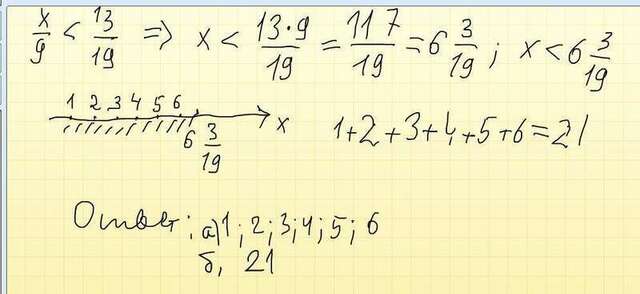 x/9 < 13/19 => x < 13·9/19 = 117/19 = 6 3/19 ; x < 6 3/19
1 2 3 4 5 6 x
6 3/19
1+2+3+4+5+6=21
Ответ: а) 1; 2; 3; 4; 5; 6
б, 21